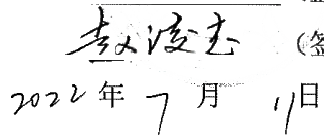 赵浚志 (签
2022年7月11日